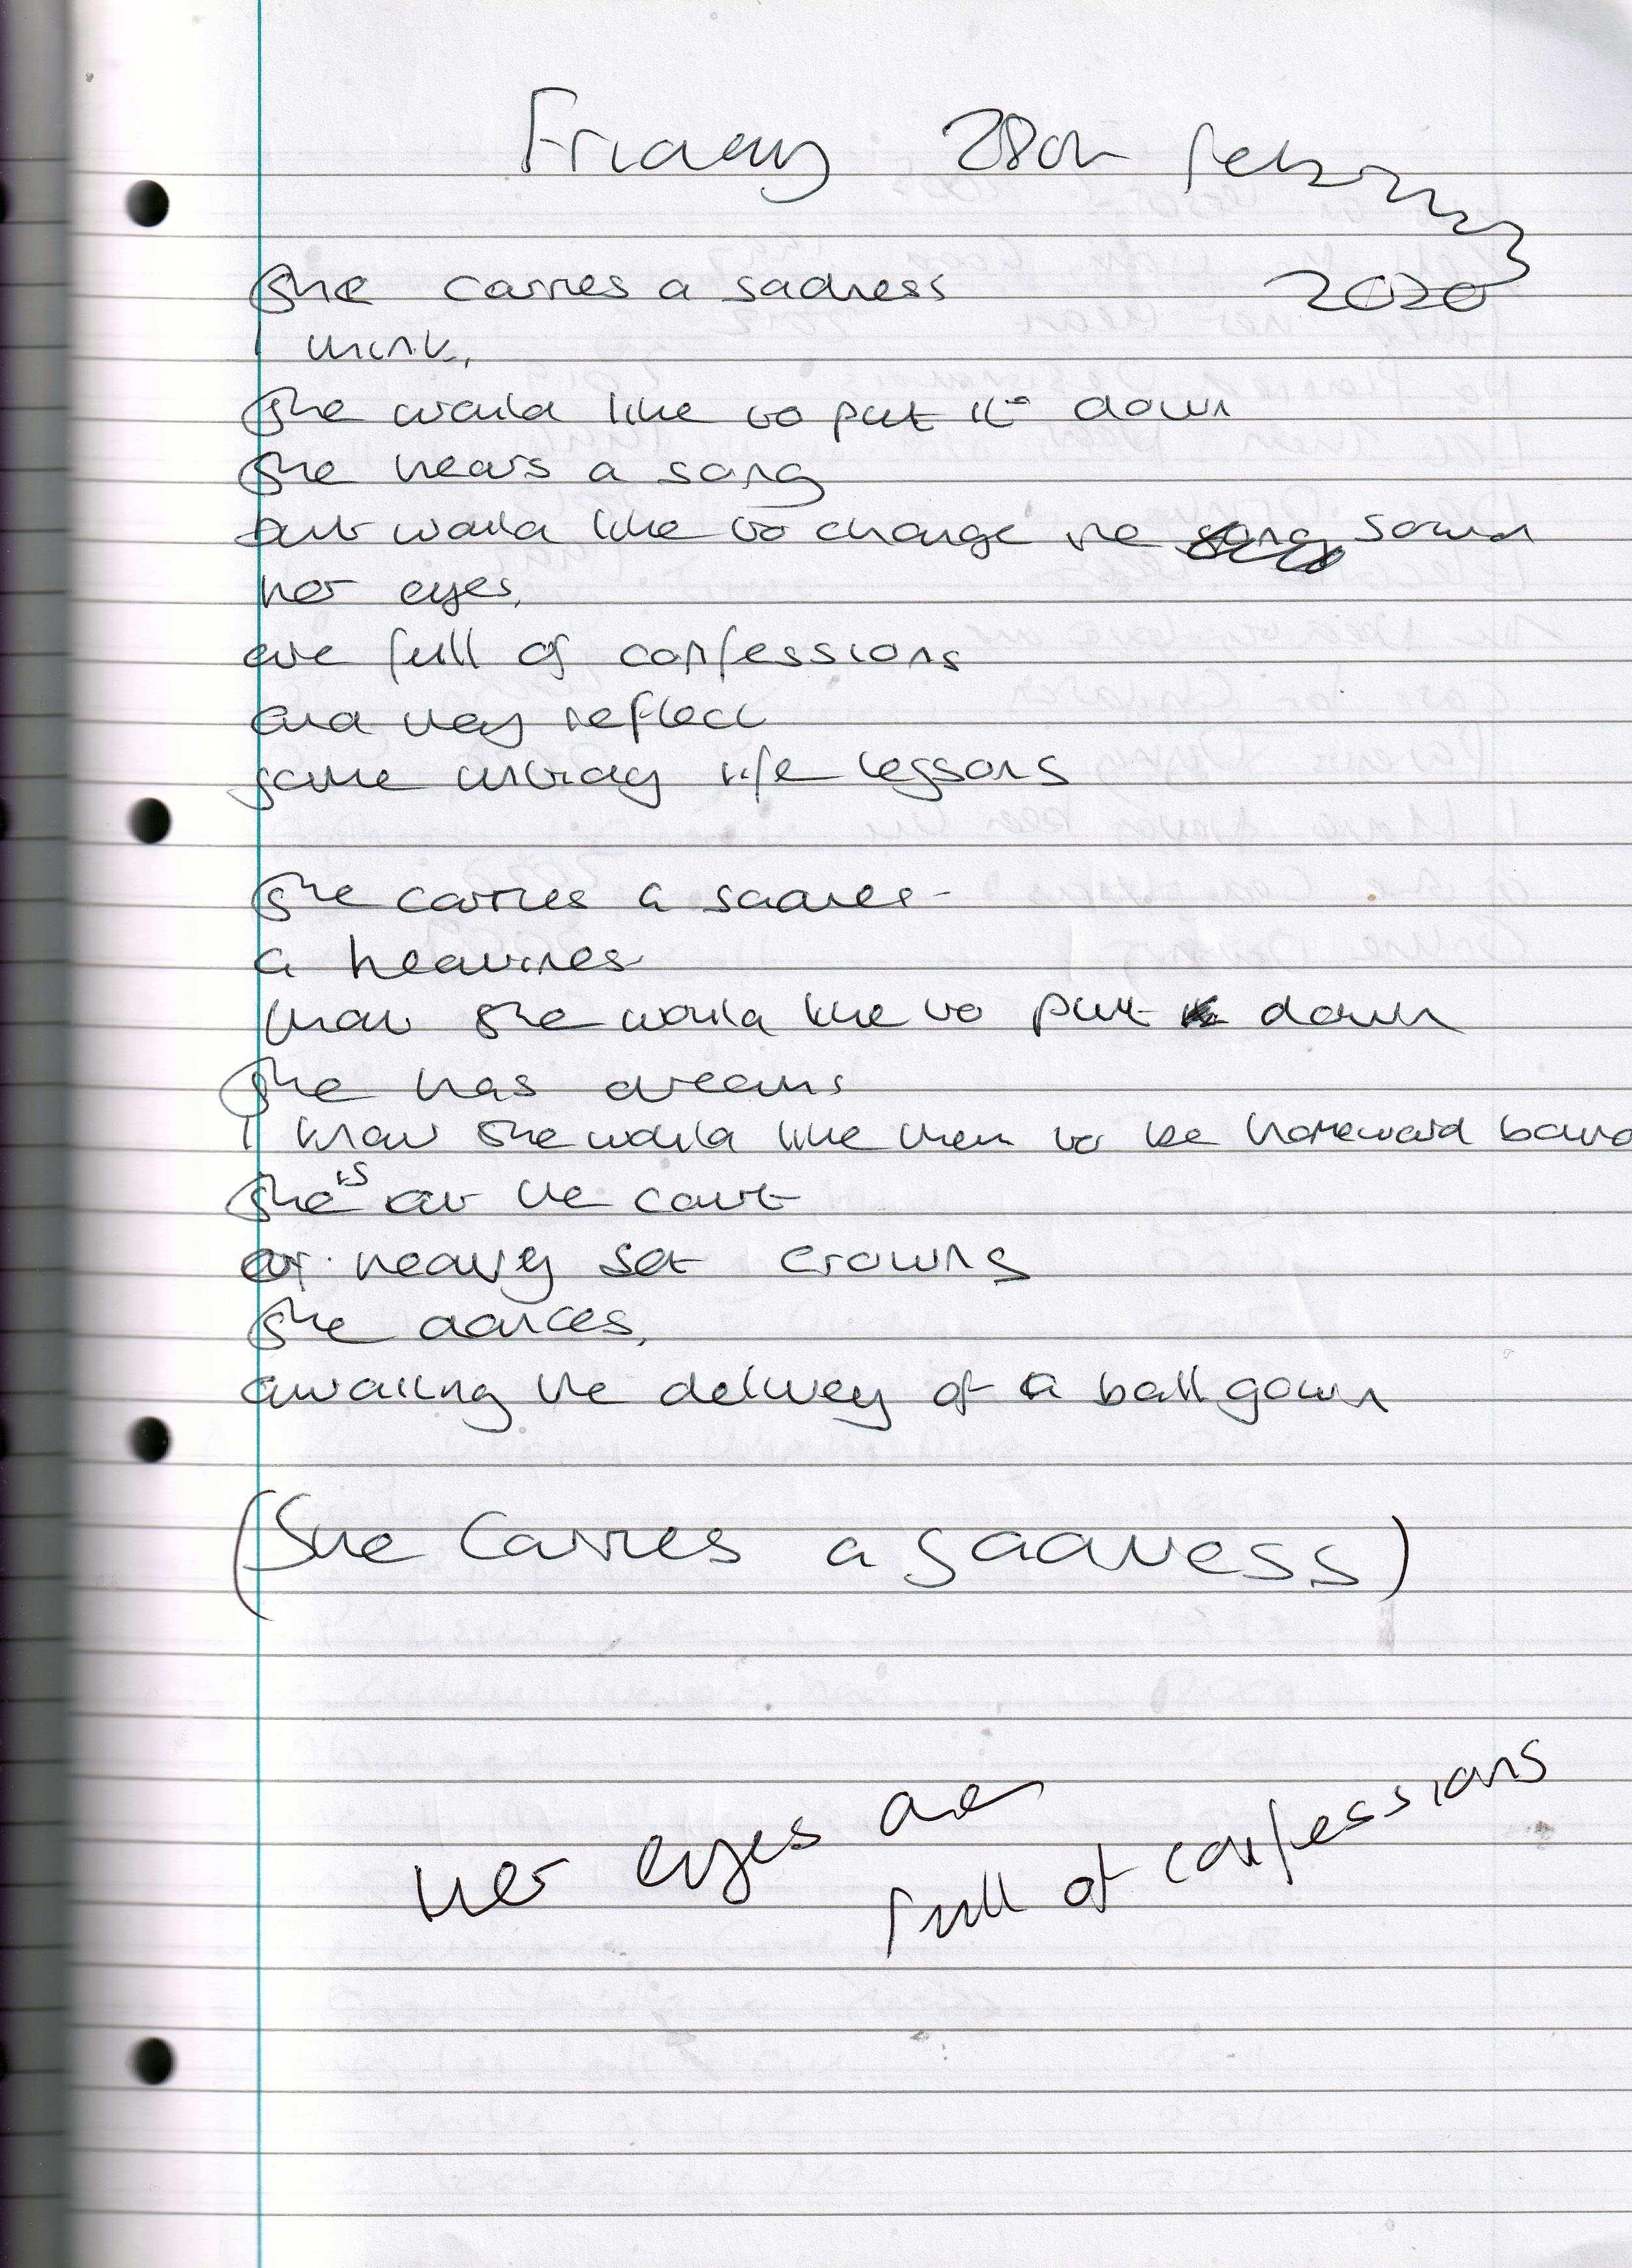 Friday 28th february
2020
She carries a sadness
I think,
She would like to put it down
She hears a song
but would like to change the song sound
her eyes,
are full of confessions
and they reflect
some untidy life lessons
She carries a sadness
a heaviness
that she would like to put down
She has dreams
I know she would like them to be homeward bound
She is at the court
of heavy set crowns
She dances,
awaiting the delivery of a ball gown
(She Carries a sadness)
her eyes are
full of confessions